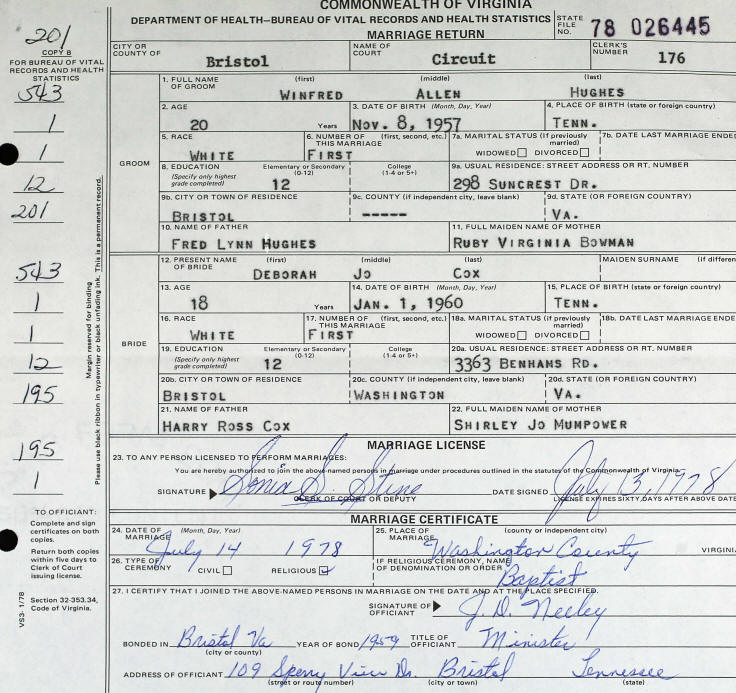 COMMONWEALTH OF VIRGINIA
DEPARTMENT OF HEALTH—BUREAU OF VITAL RECORDS AND HEALTH STATISTICS
MARRIAGE RETURN
STATE FILE NO. 78 026445
201
COPY B
FOR BUREAU OF VITAL RECORDS AND HEALTH STATISTICS
CITY OR COUNTY OF Bristol
NAME OF COURT Circuit
CLERK'S NUMBER 176
543
1
1
12
201
543
1
1
12
195
195
1
Margin reserved for binding
Please use black ribbon in typewriter or black unfading ink. This is a permanent record.
GROOM
1. FULL NAME OF GROOM (first) (middle) (last)
WINFRED ALLEN HUGHES
2. AGE 20 Years
3. DATE OF BIRTH (Month, Day, Year) Nov. 8, 1957
4. PLACE OF BIRTH (state or foreign country) TENN.
5. RACE WHITE
6. NUMBER OF THIS MARRIAGE (first, second, etc.) FIRST
7a. MARITAL STATUS (If previously married) WIDOWED DIVORCED
7b. DATE LAST MARRIAGE ENDED
8. EDUCATION (Specify only highest grade completed) Elementary or Secondary (0-12) 12 College (1-4 or 5+)
9a. USUAL RESIDENCE: STREET ADDRESS OR RT. NUMBER 298 SUNCREST DR.
9b. CITY OR TOWN OF RESIDENCE BRISTOL
9c. COUNTY (if independent city, leave blank) -----
9d. STATE (OR FOREIGN COUNTRY) VA.
10. NAME OF FATHER FRED LYNN HUGHES
11. FULL MAIDEN NAME OF MOTHER RUBY VIRGINIA BOWMAN
BRIDE
12. PRESENT NAME OF BRIDE (first) (middle) (last) MAIDEN SURNAME (if differen
DEBORAH JO COX
13. AGE 18 Years
14. DATE OF BIRTH (Month, Day, Year) JAN. 1, 1960
15. PLACE OF BIRTH (state or foreign country) TENN.
16. RACE WHITE
17. NUMBER OF THIS MARRIAGE (first, second, etc.) FIRST
18a. MARITAL STATUS (if previously married) WIDOWED DIVORCED
18b. DATE LAST MARRIAGE ENDED
19. EDUCATION (Specify only highest grade completed) Elementary or Secondary (0-12) 12 College (1-4 or 5+)
20a. USUAL RESIDENCE: STREET ADDRESS OR RT. NUMBER 3363 BENHAMS RD.
20b. CITY OR TOWN OF RESIDENCE BRISTOL
20c. COUNTY (if independent city, leave blank) WASHINGTON
20d. STATE (OR FOREIGN COUNTRY) VA.
21. NAME OF FATHER HARRY ROSS COX
22. FULL MAIDEN NAME OF MOTHER SHIRLEY JO MUMPOWER
MARRIAGE LICENSE
23. TO ANY PERSON LICENSED TO PERFORM MARRIAGES:
You are hereby authorized to join the above-named persons in marriage under procedures outlined in the statutes of the Commonwealth of Virginia.
SIGNATURE Sonia S. Stine DATE SIGNED July 13, 1978
CLERK OF COURT OR DEPUTY LICENSE EXPIRES SIXTY DAYS AFTER ABOVE DATE
MARRIAGE CERTIFICATE
24. DATE OF MARRIAGE (Month, Day, Year) July 14 1978
25. PLACE OF MARRIAGE (county or independent city) Washington County VIRGINI
26. TYPE OF CEREMONY CIVIL RELIGIOUS
IF RELIGIOUS CEREMONY, NAME OF DENOMINATION OR ORDER Baptist
27. I CERTIFY THAT I JOINED THE ABOVE-NAMED PERSONS IN MARRIAGE ON THE DATE AND AT THE PLACE SPECIFIED.
SIGNATURE OF OFFICIANT J. D. Neeley
BONDED IN Bristol Va (city or county) YEAR OF BOND 1959 TITLE OF OFFICIANT Minister
ADDRESS OF OFFICIANT 109 Sperry View Dr. Bristol Tennessee
(street or route number) (city or town) (state)
TO OFFICIANT:
Complete and sign certificates on both copies.
Return both copies within five days to Clerk of Court issuing license.
Section 32-353.34, Code of Virginia.
VS3- 1/78